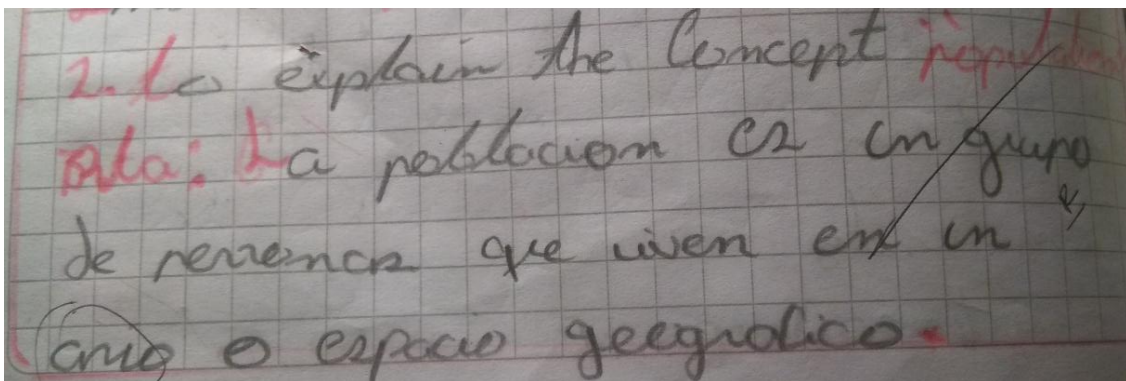 2. Lo explain the Concept population
Rta: La poblacion es un grupo
de personas que viven en un
area o espacio geografico.